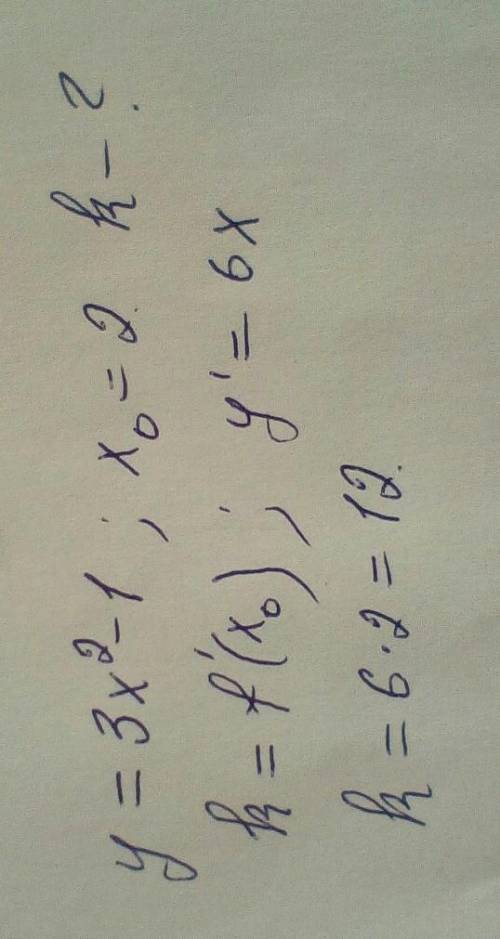 y = 3x² - 1 ; x₀ = 2 k - ?
k = f'(x₀) ; y' = 6x
k = 6 · 2 = 12.